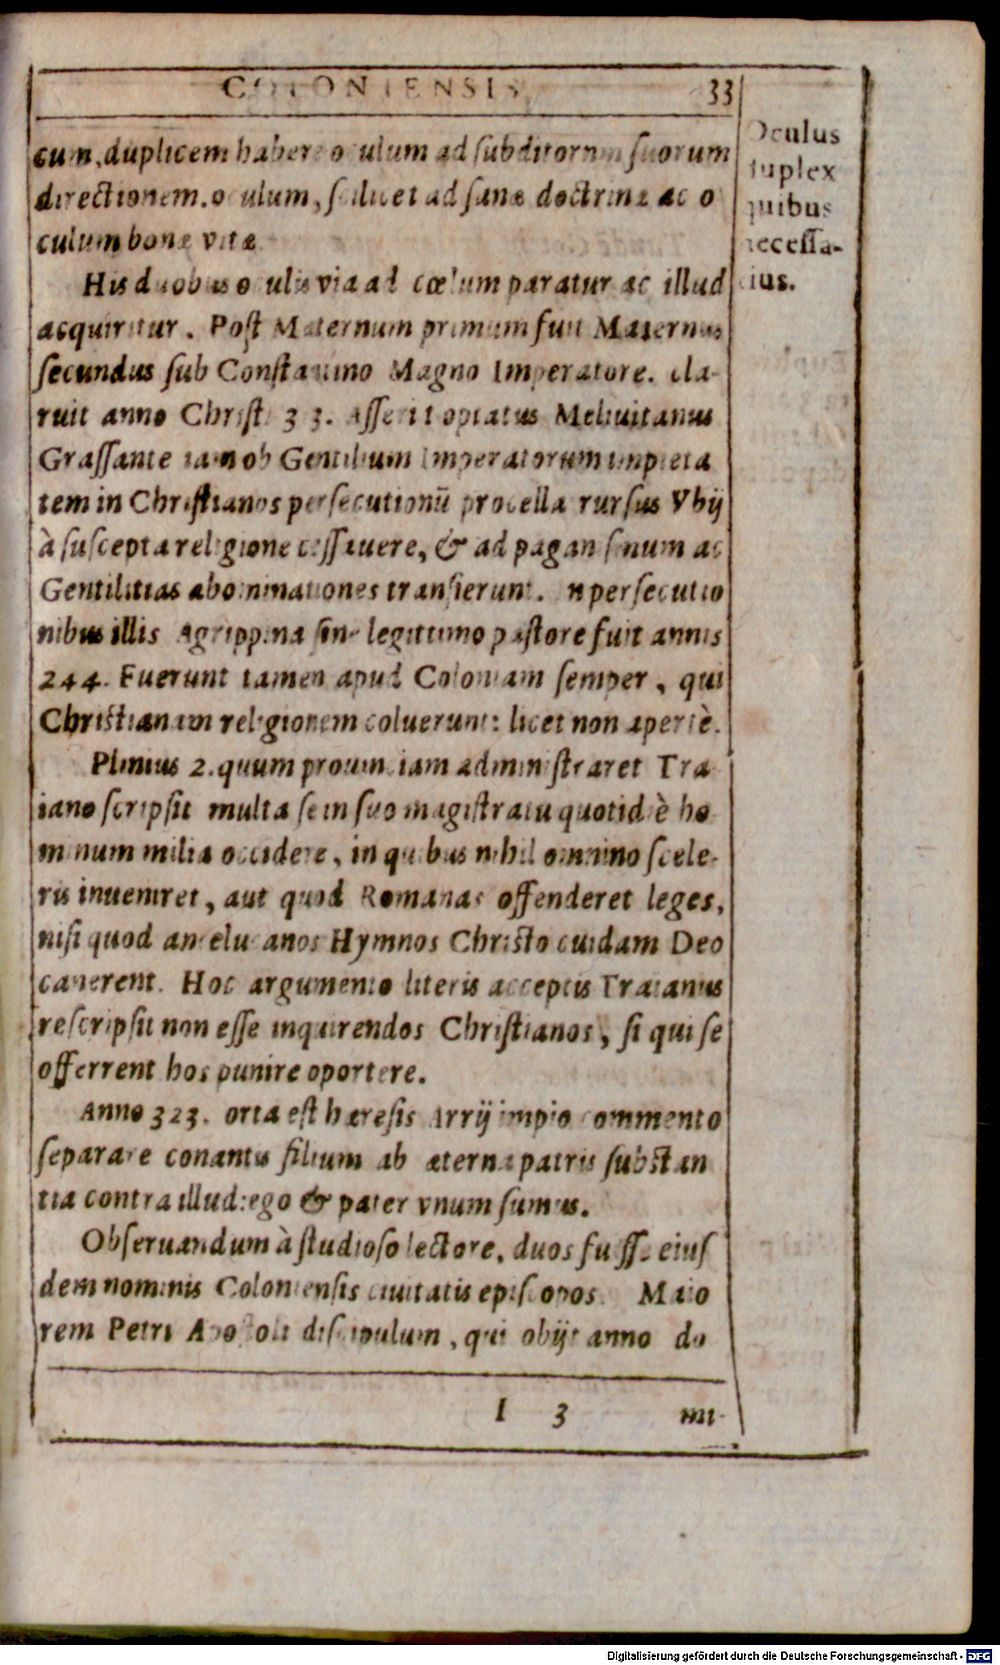 COLONIENSIS 33
cum, duplicem habere oculum ad subditorum suorum
directionem. oculum, scilicet ad sanæ doctrinæ ac o
culum bonæ vitæ
Oculus
duplex
quibus
necessa-
rius.
His duobus oculis via ad cœlum paratur ac illud
acquiritur. Post Maternum primum fuit Maternus
secundus sub Constantino Magno Imperatore. cla-
ruit anno Christi 3 3. Asserit optatus Meliuitanus
Grassante tam ob Gentilium Imperatorum impieta
tem in Christianos persecutionū procella rursus Vbij
à suscepta religione cessauere, & ad paganismum ac
Gentilitias abominationes transierunt. In persecutio
nibus illis Agrippina sine legittimo pastore fuit annis
244. Fuerunt tamen apud Coloniam semper, qui
Christianam religionem coluerunt: licet non apertè.
Plinius 2. quum prouinciam administraret Tra
iano scripsit multa se in suo magistratu quotidiè ho
minum milia occidere, in quibus nihil omnino scele-
ris inueniret, aut quod Romanas offenderet leges,
nisi quod antelucanos Hymnos Christo cuidam Deo
canerent. Hoc argumento literis acceptis Traianus
rescripsit non esse inquirendos Christianos, si qui se
offerrent hos punire oportere.
Anno 323. orta est hæresis Arrij impio commento
separare conantis filium ab æterna patris substan
tia contra illud: ego & pater vnum sumus.
Obseruandum à studioso lectore, duos fuisse eius
dem nominis Coloniensis ciuitatis episcopos. Maio
rem Petri Apostoli discipulum, qui obijt anno do
I 3 mi-
Digitalisierung gefördert durch die Deutsche Forschungsgemeinschaft - DFG